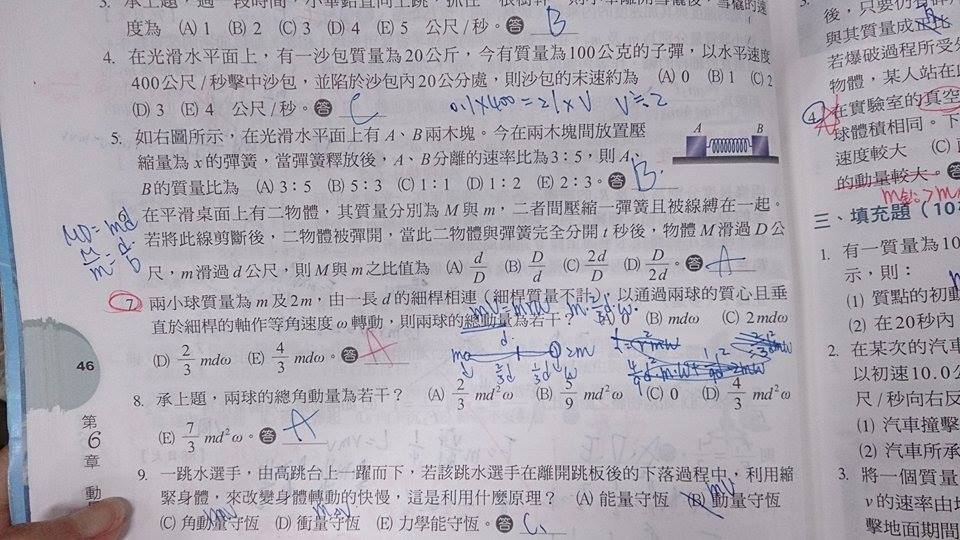 度為 (A) 1 (B) 2 (C) 3 (D) 4 (E) 5 公尺/秒。答 B
4. 在光滑水平面上,有一沙包質量為20公斤,今有質量為100公克的子彈,以水平速度
400公尺/秒擊中沙包,並陷於沙包內20公分處,則沙包的末速約為 (A) 0 (B) 1 (C) 2
(D) 3 (E) 4 公尺/秒。答 C 0.1×400=21×V V≒2
5. 如右圖所示,在光滑水平面上有A、B兩木塊。今在兩木塊間放置壓
縮量為x的彈簧,當彈簧釋放後,A、B分離的速率比為3:5,則A、
B的質量比為 (A) 3:5 (B) 5:3 (C) 1:1 (D) 1:2 (E) 2:3。答 B
A B
6. 在平滑桌面上有二物體,其質量分別為M與m,二者間壓縮一彈簧且被線縛在一起。
若將此線剪斷後,二物體被彈開,當此二物體與彈簧完全分開t秒後,物體M滑過D公
尺,m滑過d公尺,則M與m之比值為 (A) d/D (B) D/d (C) 2d/D (D) D/2d。答 A
MD=md
M/m=d/D
7. 兩小球質量為m及2m,由一長d的細桿相連(細桿質量不計),以通過兩球的質心且垂
直於細桿的軸作等角速度ω轉動,則兩球的總動量為若干? (A) 0 (B) mdω (C) 2mdω
(D) 2/3 mdω (E) 4/3 mdω。答 A
d
m 2m
2/3 d 1/3 d
8. 承上題,兩球的總角動量為若干? (A) 2/3 md²ω (B) 5/9 md²ω (C) 0 (D) 4/3 md²ω
(E) 7/3 md²ω。答 A
9. 一跳水選手,由高跳台上一躍而下,若該跳水選手在離開跳板後的下落過程中,利用縮
緊身體,來改變身體轉動的快慢,這是利用什麼原理? (A) 能量守恆 (B) 動量守恆
(C) 角動量守恆 (D) 衝量守恆 (E) 力學能守恆。答 C
46
第
6
章
動
後,只要
與其質量成正比
若爆破過程所受
物體,某人站在
4. 在實驗室的真空
球體積相同。下
速度較大 (C)
的動量較大。答
三、填充題(10
1. 有一質量為10
示,則:
(1) 質點的初動
(2) 在20秒內
2. 在某次的汽車
以初速10.0公
尺/秒向右反
(1) 汽車撞擊
(2) 汽車所承
3. 將一個質量
v的速率由地
擊地面期間